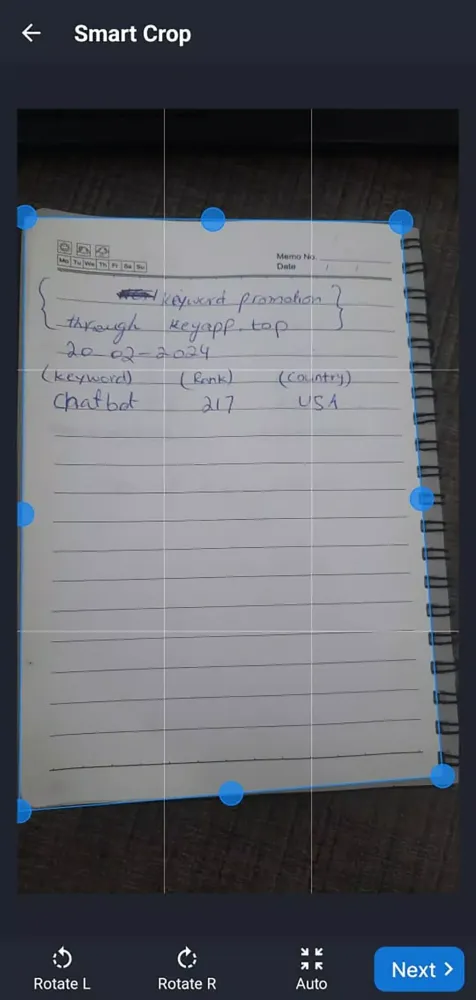 Smart Crop
Memo No.
Mo Tu We Th Fr Sa Su
Date / /
{ keyword promotion }
through keyapp.top
20-02-2024
(keyword) (Rank) (Country)
Chatbot 217 USA
Rotate L Rotate R Auto Next